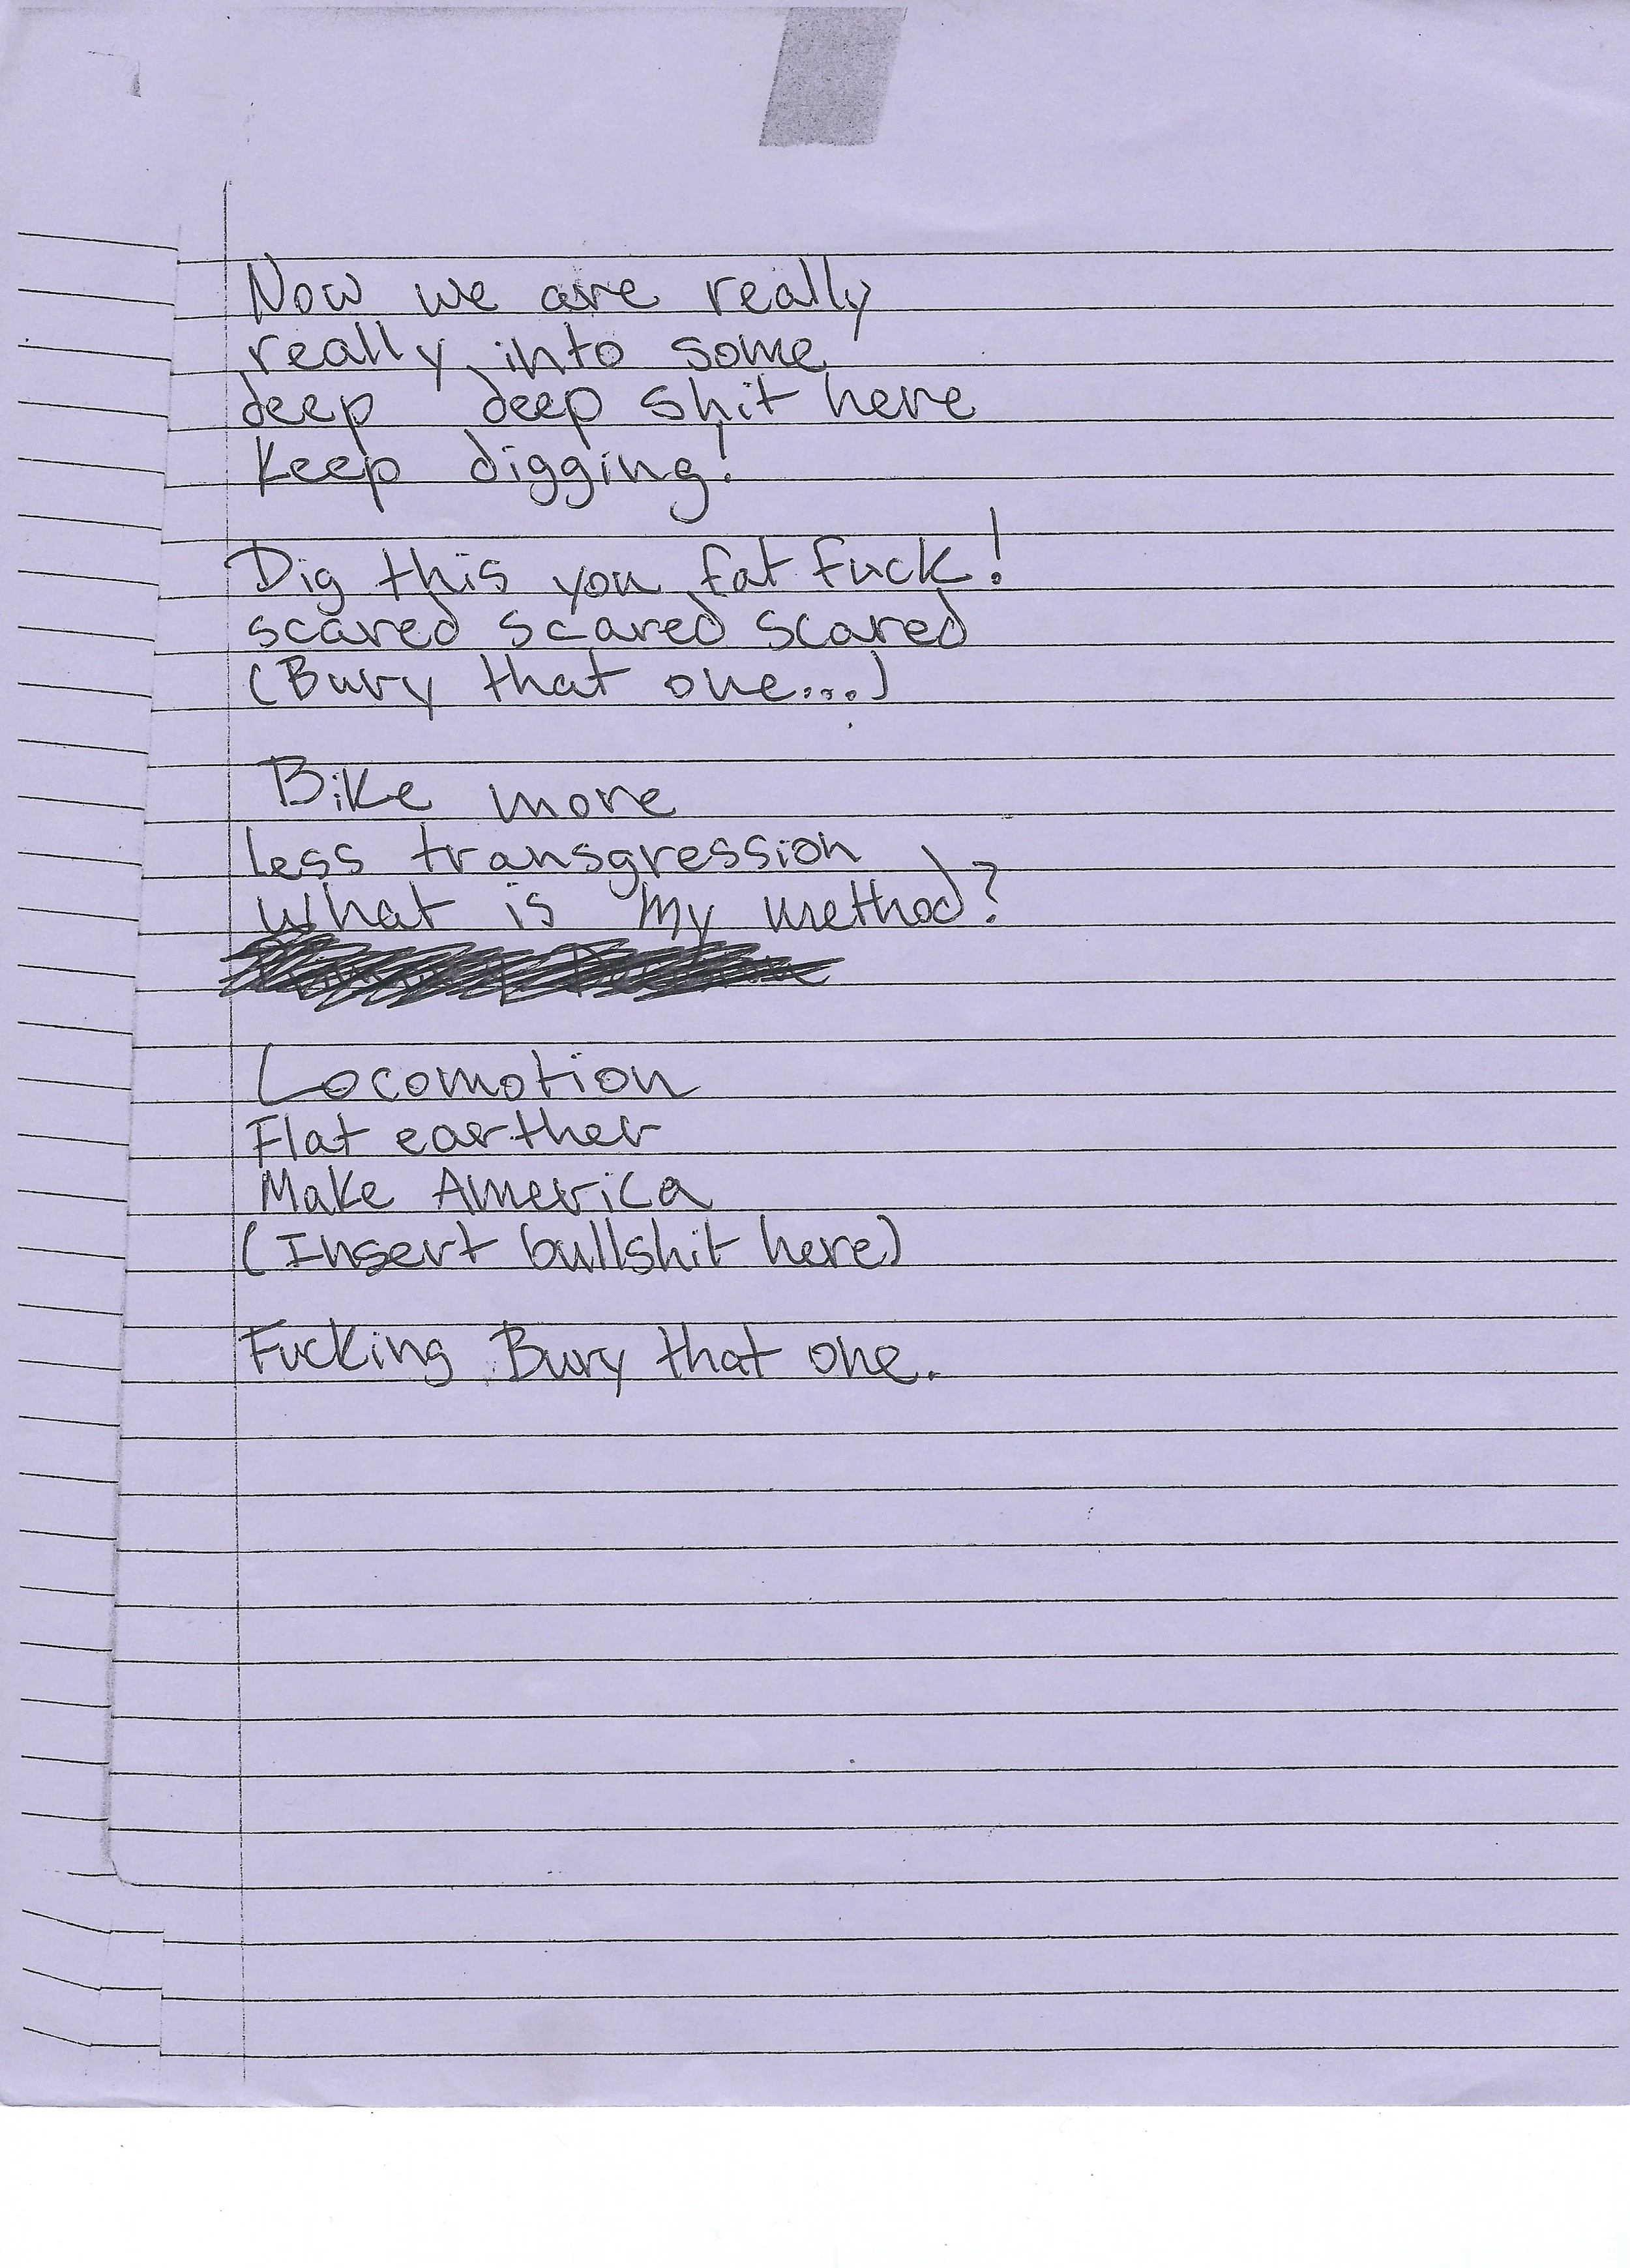 Now we are really
really into some
deep deep shit here
Keep digging!
Dig this you fat fuck!
scared scared scared
(Bury that one...)
Bike more
less transgression
What is my method?
Locomotion
Flat earther
Make America
(Insert bullshit here)
Fucking Bury that one.